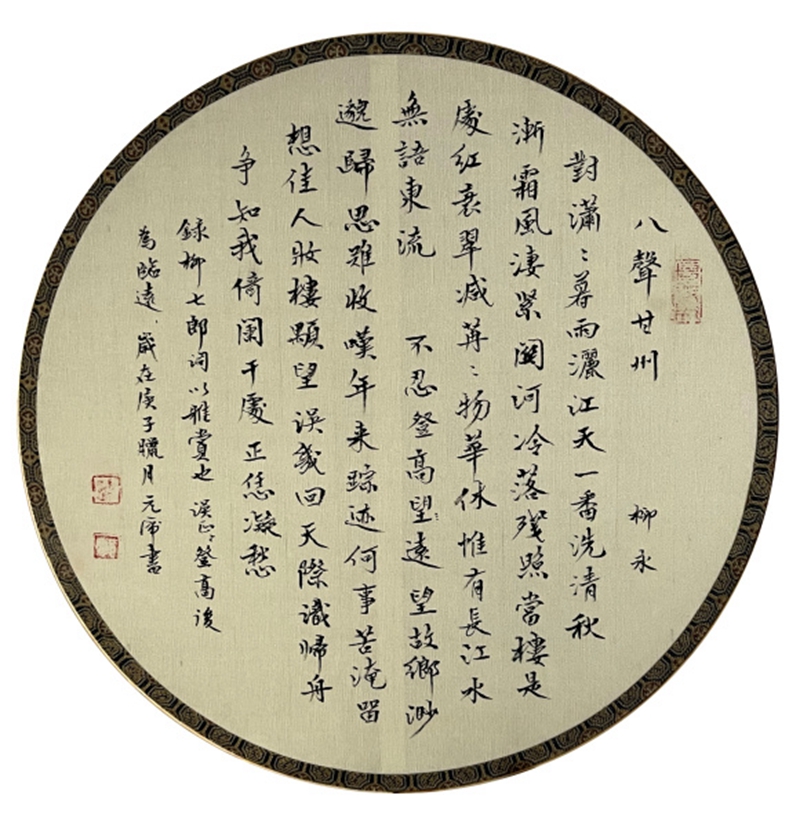 八聲甘州 柳永
對瀟〻暮雨灑江天一番洗清秋
漸霜風淒緊關河冷落殘照當樓是
處紅衰翠减苒〻物華休惟有長江水
無語東流 不忍登高望遠望故鄉渺
邈歸思難收嘆年来踪迹何事苦淹留
想佳人妝樓顒望误幾回天際識帰舟
争知我倚闌干處正恁凝愁
録柳七郎词以雅賞也 误正〻登高後
為臨遠、歲在庚子臘月元書